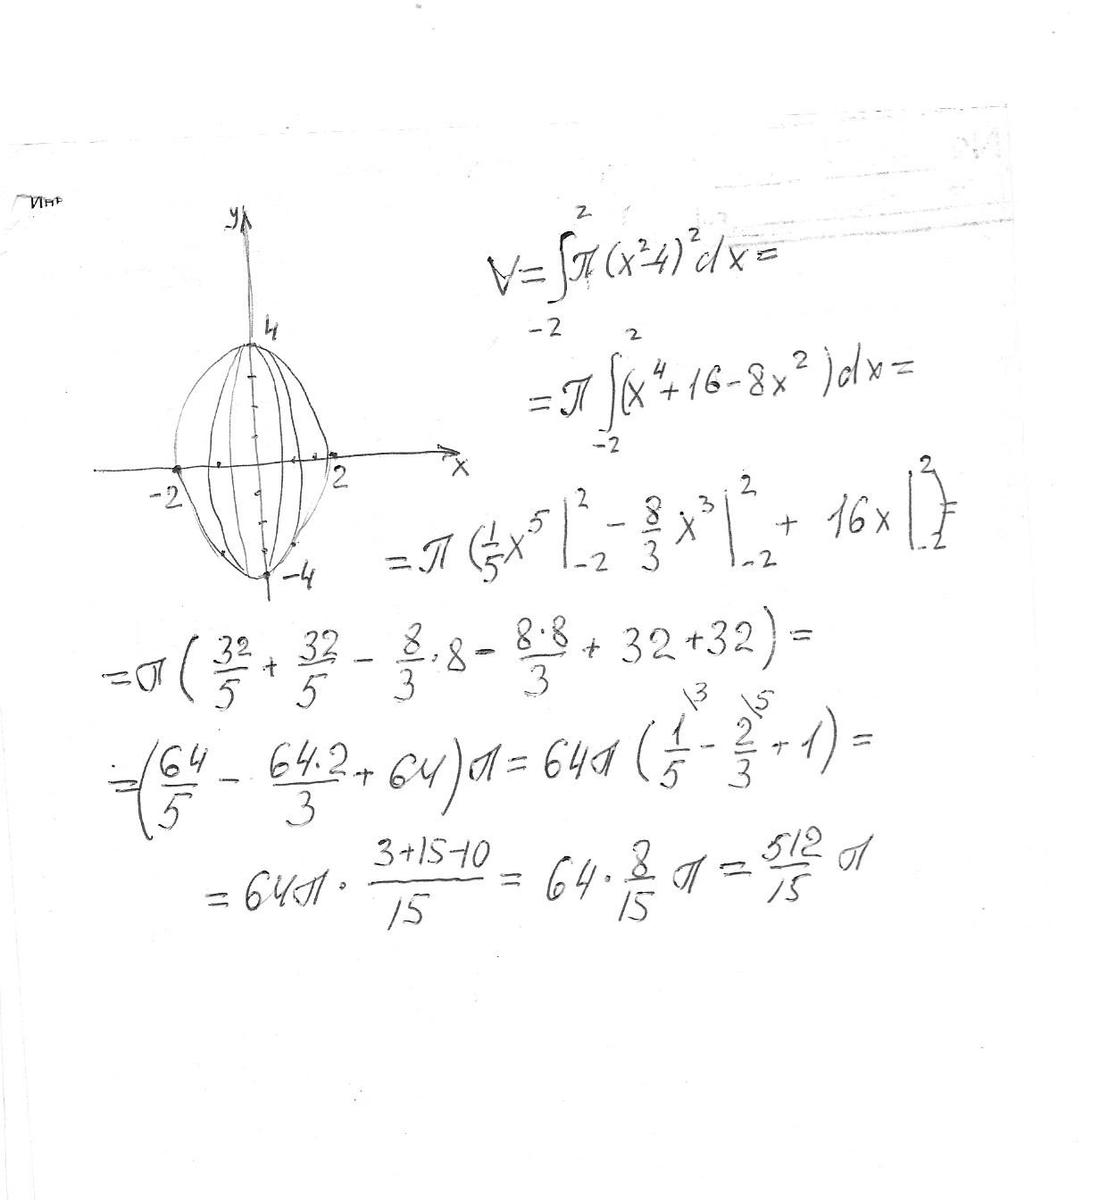 Инт
y
4
x
-2
2
-4
V=∫₋₂² π(x²-4)²dx=
=π∫₋₂²(x⁴+16-8x²)dx=
=π(1/5 x⁵|₋₂² - 8/3 x³|₋₂² + 16x|₋₂²)=
=π(32/5 + 32/5 - 8/3·8 - 8·8/3 + 32+32)=
=(64/5 - 64·2/3 + 64)π=64π(1/5\3 - 2/3\5 + 1)=
=64π·(3+15-10)/15 = 64·8/15 π = 512/15 π